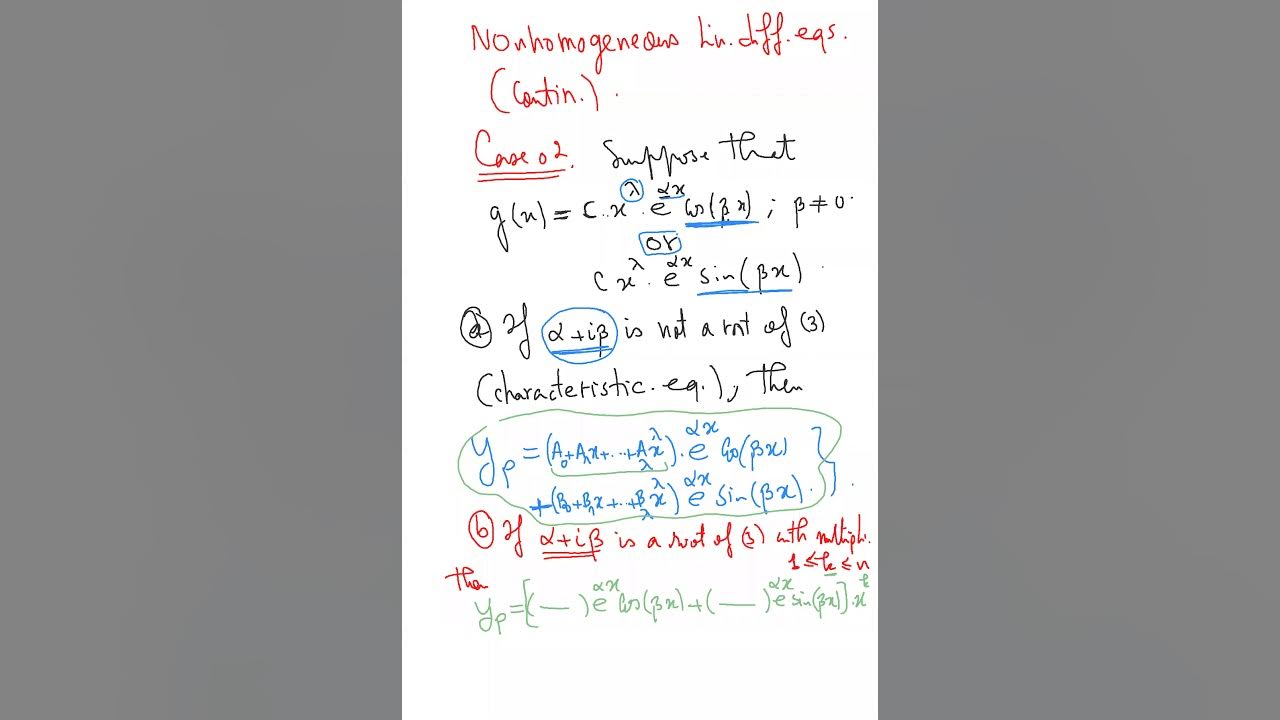 Nonhomogeneous Lin. diff. eqs.
(Contin.).
Case 02. Suppose that
g(x) = C.x^λ.e^{αx} Cos(βx) ; β≠0.
or
C x^λ.e^{αx} sin(βx).
(a) If α+iβ is not a root of (3)
(characteristic. eq.), then
y_p = (A_0+A_1x+...+A_λx^λ).e^{αx} Cos(βx)
+(B_0+B_1x+...+B_λx^λ) e^{αx} sin(βx).
(b) If α+iβ is a root of (3) with multipl.
1 ≤ k ≤ n
then
y_p = [( — ) e^{αx} Cos(βx) + ( — ) e^{αx} sin(βx)].x^k